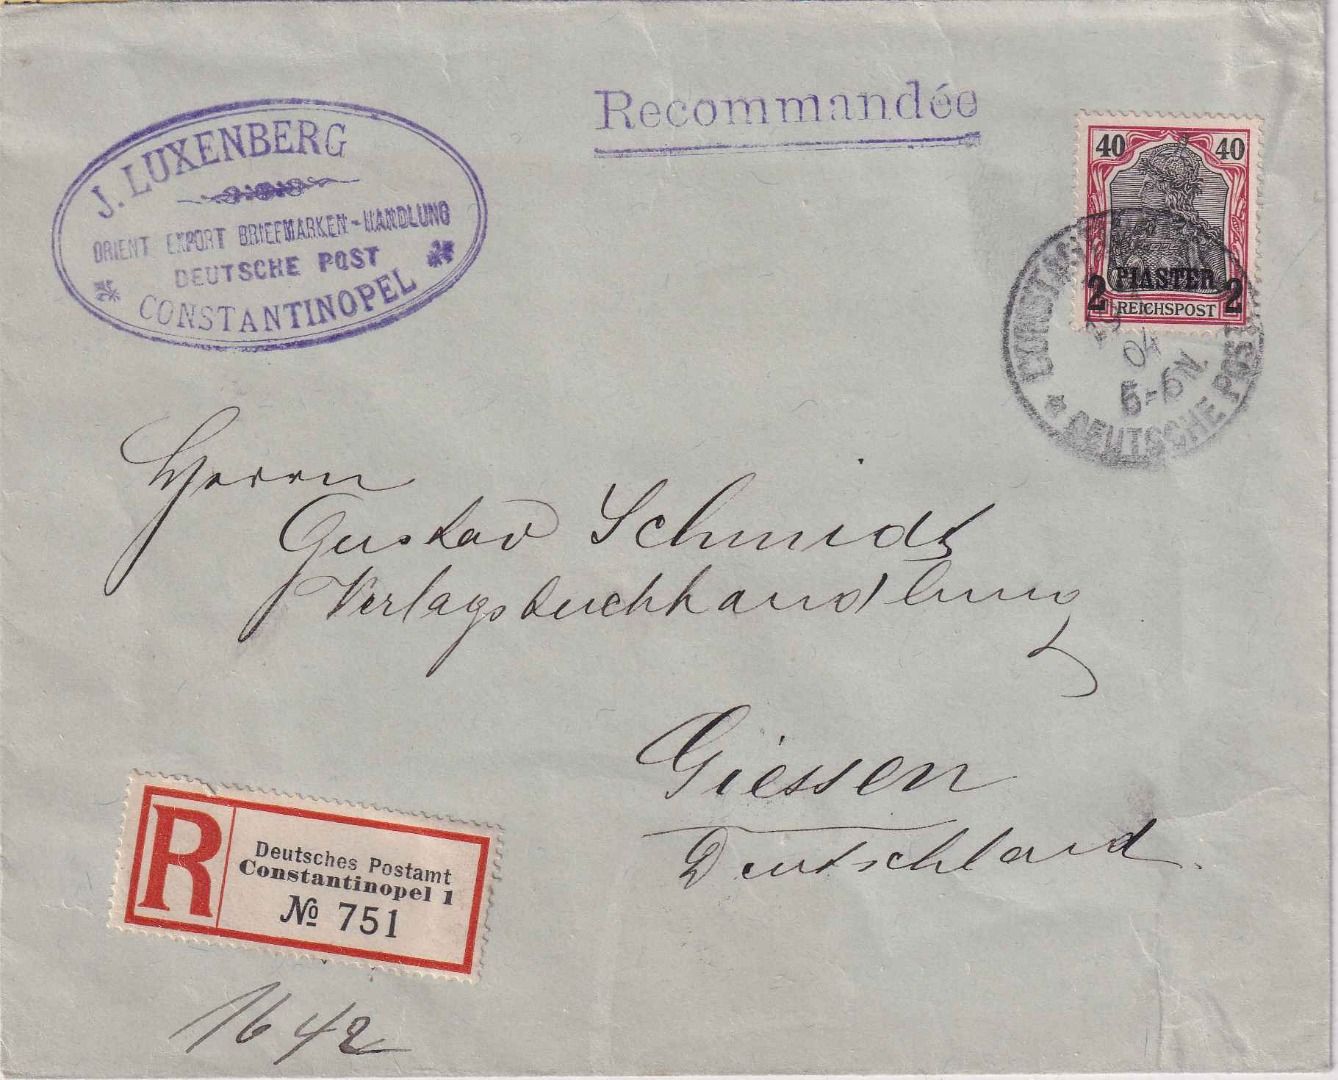 J. LUXENBERG
ORIENT EXPORT BRIEFMARKEN-HANDLUNG
DEUTSCHE POST
CONSTANTINOPEL
Recommandée
40 40
2 PIASTER 2
REICHSPOST
04
5-6N.
DEUTSCHE POST
Herrn
Gustav Schmidt
Verlagsbuchhandlung
Giessen
Deutschland
R
Deutsches Postamt
Constantinopel 1
№ 751
1642